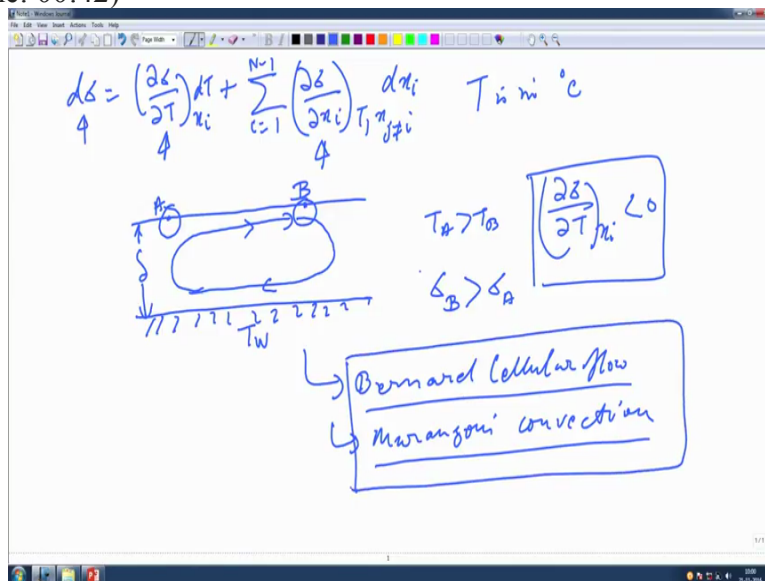 Note1 - Windows Journal
File Edit View Insert Actions Tools Help
Page Width
dσ = (∂σ/∂T)_{x_i} dT + Σ_{i=1}^{N-1} (∂σ/∂x_i)_{T, x_{j≠i}} dx_i T is in °C
A B
T_A > T_B (∂σ/∂T)_{x_i} < 0
δ
σ_B > σ_A
T_W
Bernard Cellular flow
Marangoni convection
1
1/1
10:00